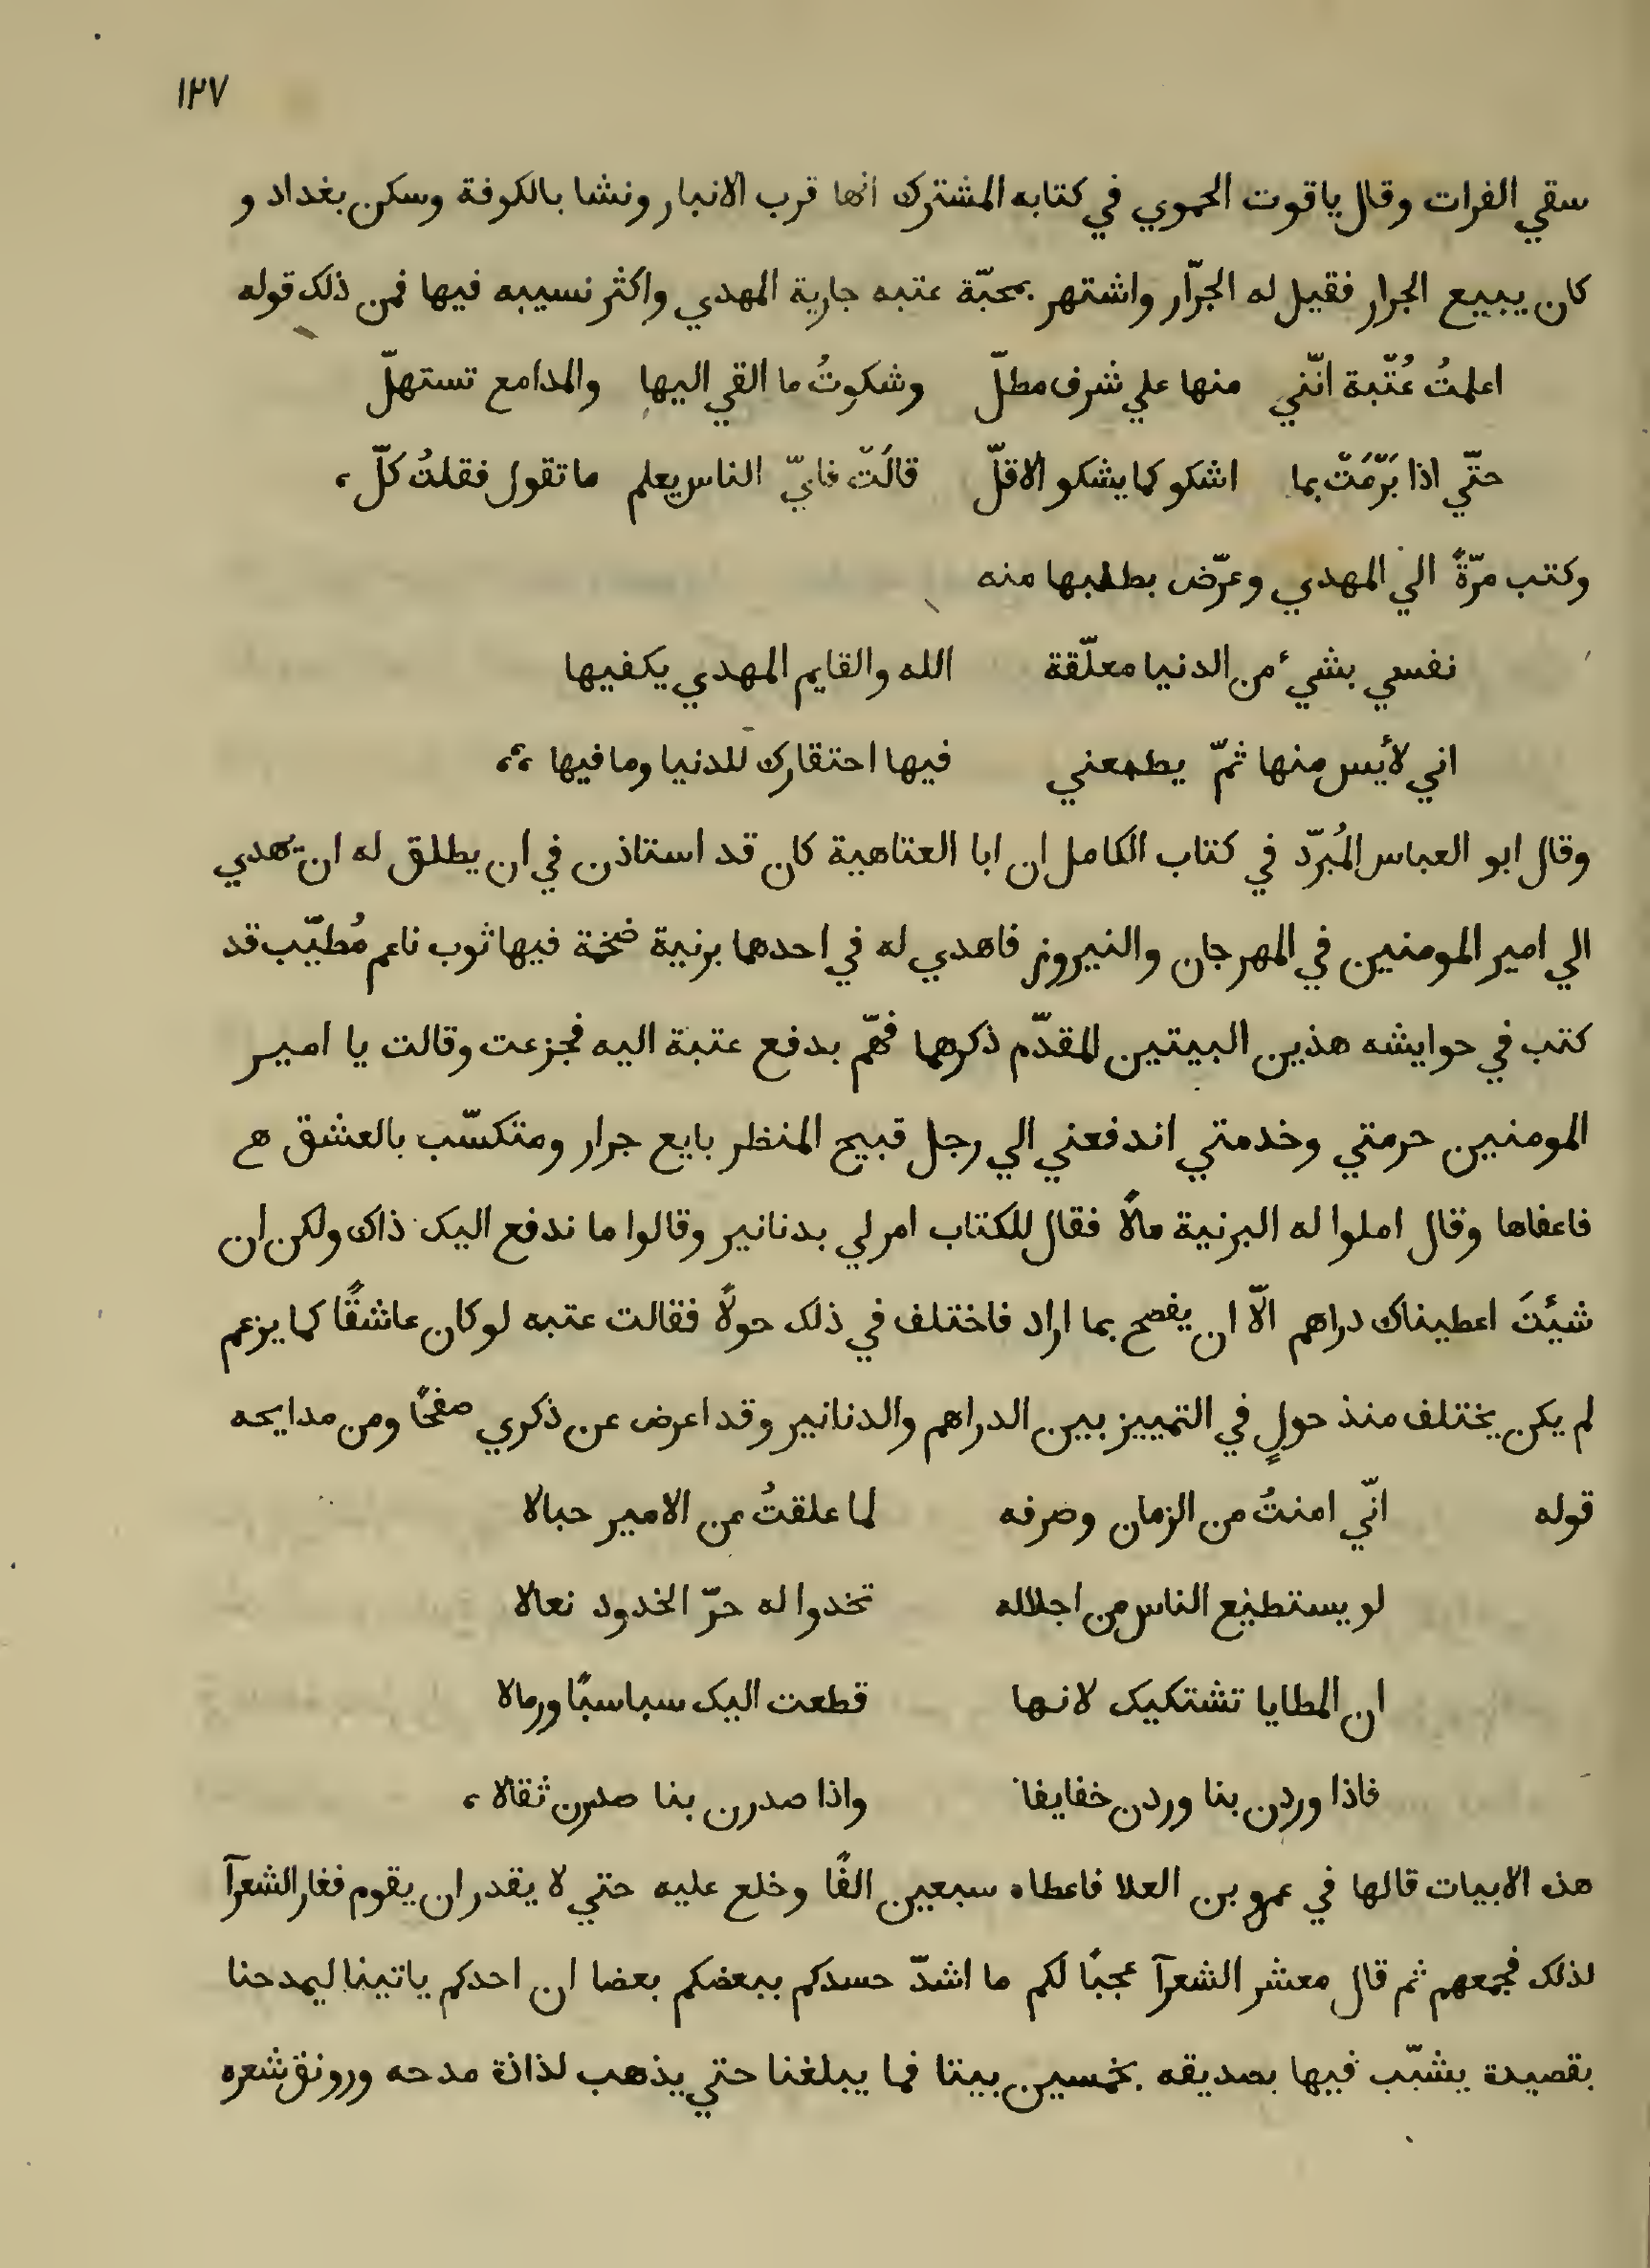 ١٢٧
سقي الفرات وقال ياقوت الحموي في كتابه المشترك انها قرب الانبار ونشا بالكوفة وسكن بغداد و
كان يبيع الجرار فقيل له الجرّار واشتهر بمحبّة عتبه جارية المهدي واكثر نسيبه فيها فمن ذلك قوله
اعلمتُ عُتّبة انّني منها علي شرف مطلّ وشكوتُ ما القي اليها والمدامع تستهلّ
حتّي اذا بَرّمَتْ بما اشكو كما يشكو الاقلّ قالَتْ فايّ الناس يعلم ما تقول فقلتُ كلّ ،
وكتب مرّةً الي المهدي وعرّض بطلبها منه
نفسي بشيء من الدنيا معلّقة الله والقايم المهدي يكفيها
اني لأيس منها ثمّ يطمعني فيها احتقارك للدنيا وما فيها ،،
وقال ابو العباس المُبرّد في كتاب الكامل ان ابا العتاهية كان قد استاذن في ان يطلق له ان يهدي
الي امير المومنين في المهرجان والنيروز فاهدي له في احدهما برنية ضخمة فيها ثوب ناعم مُطيّب قد
كتب في حوايشه هذين البيتين المقدّم ذكرهما فهّم بدفع عتبة اليه فجزعت وقالت يا امير
المومنين حرمتي وخدمتي اندفعني الي رجل قبيح المنظر بايع جرار ومتكسّب بالعشق هح
فاعفاها وقال املوا له البرنية مالاً فقال للكتاب امر لي بدنانير وقالوا ما ندفع اليك ذاك ولكن ان
شيئتَ اعطيناك دراهم الّا ان يفصح بما اراد فاختلف في ذلك حولاً فقالت عتبه لو كان عاشقًا كما يزعم
لم يكن يختلف منذ حولٍ في التمييز بين الدراهم والدنانير وقد اعرض عن ذكري صفحًا ومن مدايحه
قوله انّي امنتُ من الزمان وصرفه لما علقتُ من الامير حبالا
لو يستطيع الناس من اجلاله تخدوا له حرّ الخدود نعالا
ان المطايا تشتكيك لانها قطعت اليك سباسبًا ورمالا
فاذا وردن بنا وردن خفايفا واذا صدرن بنا صدرن ثقالا ،
هذه الابيات قالها في عمرو بن العلا فاعطاه سبعين الفًا وخلع عليه حتي لا يقدر ان يقوم فغار الشعرآ
لذلك فجمعهم ثم قال معشر الشعرآ عجبًا لكم ما اشدّ حسدكم ببعضكم بعضا ان احدكم ياتينا ليمدحنا
بقصيدة يشبّب فيها بصديقه بخمسين بيتا فما يبلغنا حتي يذهب لذاذة مدحه ورونق شعره